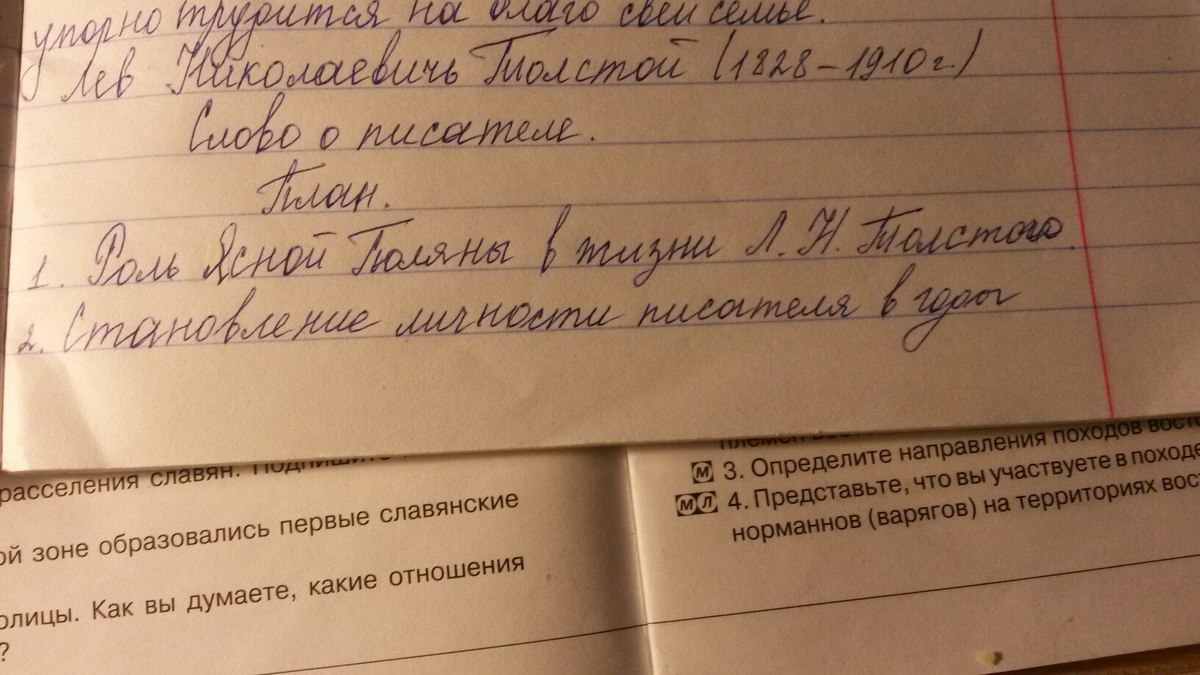 упорно трудится на благо своей семье.
Лев Николаевичь Толстой (1828-1910г.)
Слово о писателе.
План.
1. Роль Ясной Поляны в жизни Л. Н. Толстого.
2. Становление личности писателя в годы
расселения славян. Подпишите
ой зоне образовались первые славянские
олицы. Как вы думаете, какие отношения
?
племен вос
М 3. Определите направления походов восто
М Л 4. Представьте, что вы участвуете в походе
норманнов (варягов) на территориях вост